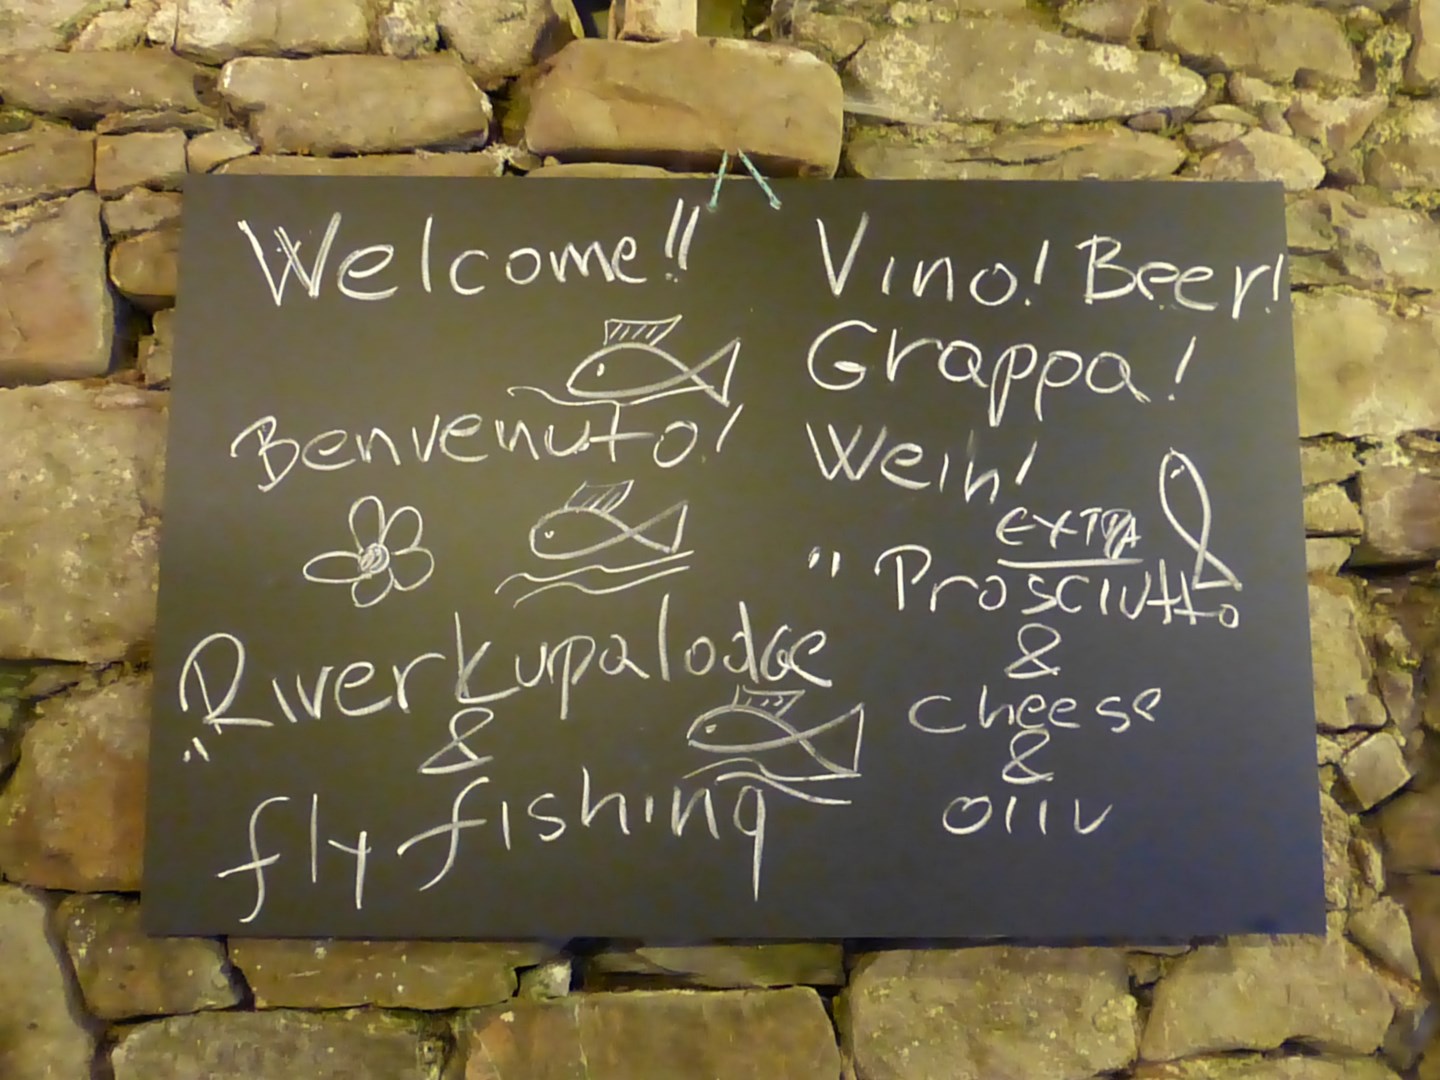 Welcome!!
Benvenuto!
River kupa lodge
"
&
fly fishing
Vino! Beer!
Grappa!
Weih!
EXTRA
" Prosciutto
&
cheese
&
oliv